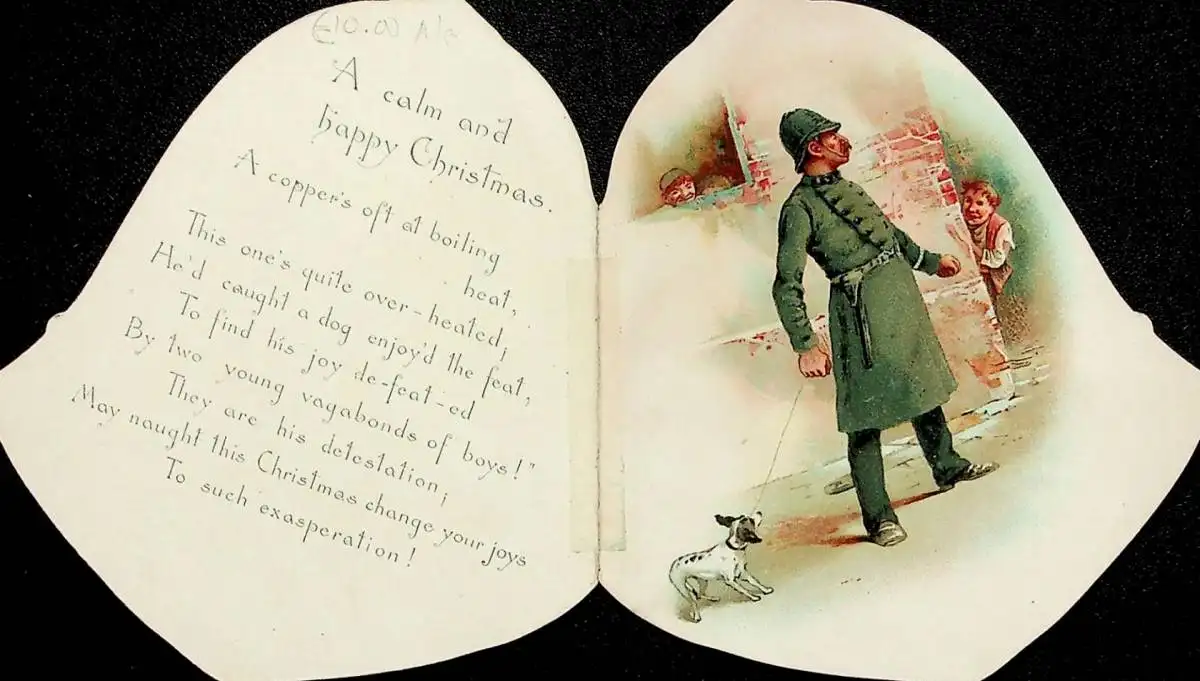 €10.00
A calm and
happy Christmas.
A copper's oft at boiling
heat,
This one's quite over-heated;
He'd caught a dog enjoy'd the feat,
To find his joy de-feat-ed
By two young vagabonds of boys!"
They are his detestation;
May naught this Christmas change your joys
To such exasperation!